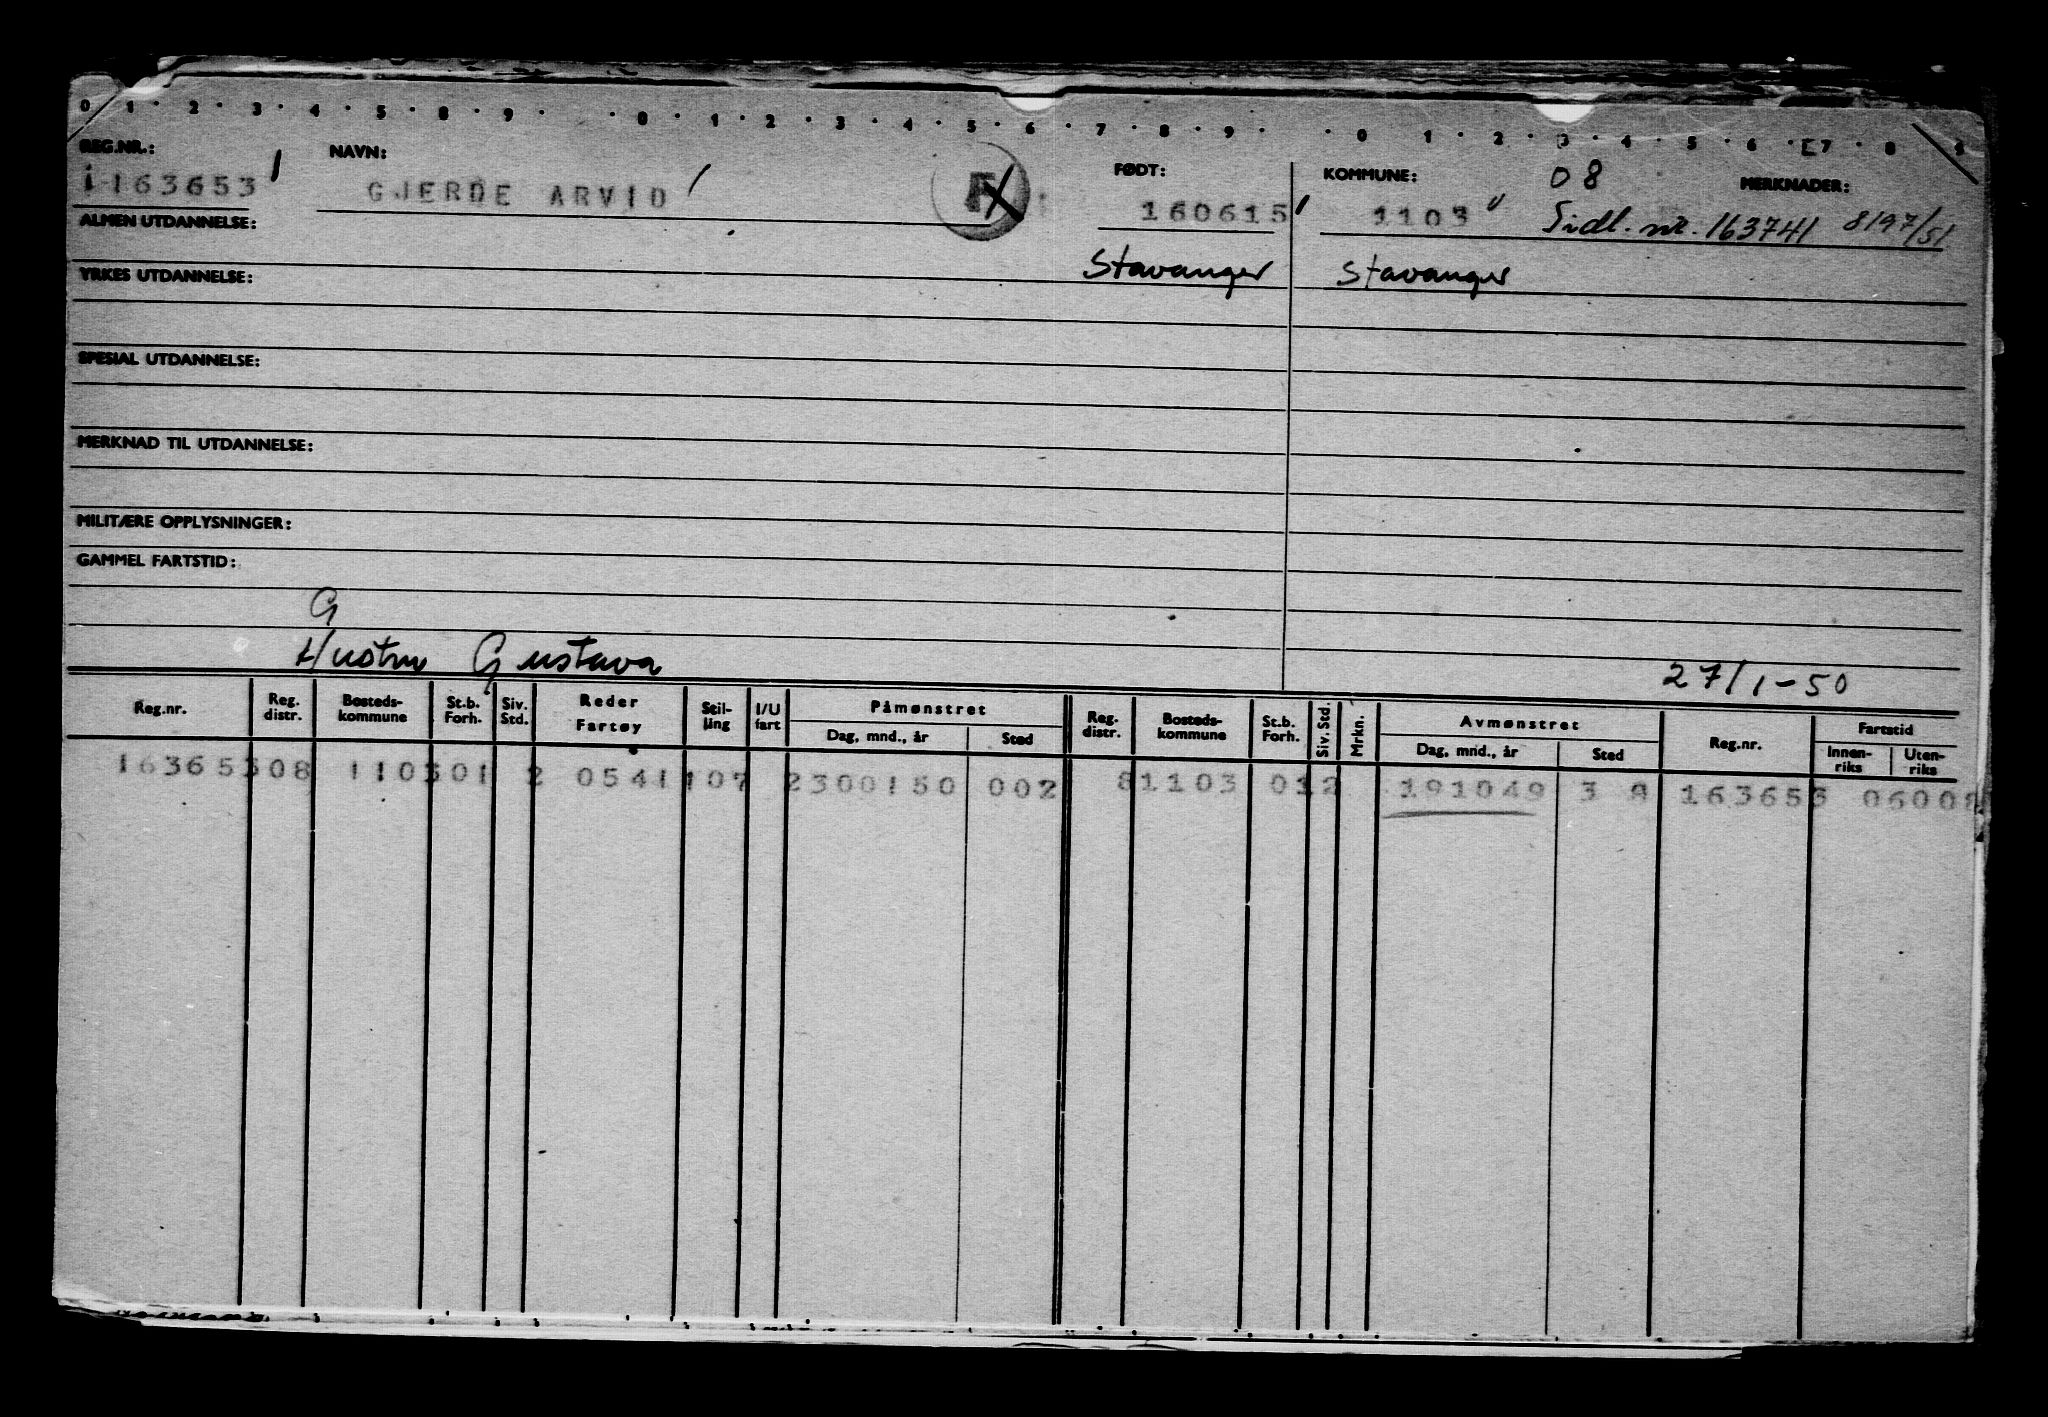 0 1 · 2 · 3 · 4 · 5 · 8 · 9 · · 0 · 1 · 2 · 3 · 4 · 5 · 6 · 7 · 8 · 9 · · 0 1 · 2 · 3 · 4 · 5 · 6 · 7 · 8
REG.NR.: NAVN: FØDT: KOMMUNE: 08 MERKNADER:
1163653 GJERDE ARVID 160615 1103 Tidl. nr. 163741 8197/51
ALMEN UTDANNELSE:
Stavanger Stavanger
YRKES UTDANNELSE:
SPESIAL UTDANNELSE:
MERKNAD TIL UTDANNELSE:
MILITÆRE OPPLYSNINGER:
GAMMEL FARTSTID:
G
Hustru Gustava
27/1-50
Reg.nr. Reg. distr. Bosteds-kommune St.b. Forh. Siv. Std. Reder Fartøy Stil-ling I/U fart Påmønstret Dag, mnd., år Sted Reg. distr. Bosteds-kommune St.b. Forh. Siv. Std. Mrkn. Avmønstret Dag, mnd., år Sted Reg.nr. Fartstid Innen-riks Uten-riks
163653 08 1103 01 2 0541 107 2300150 002 8 1103 01 2 191049 3 8 163653 06008